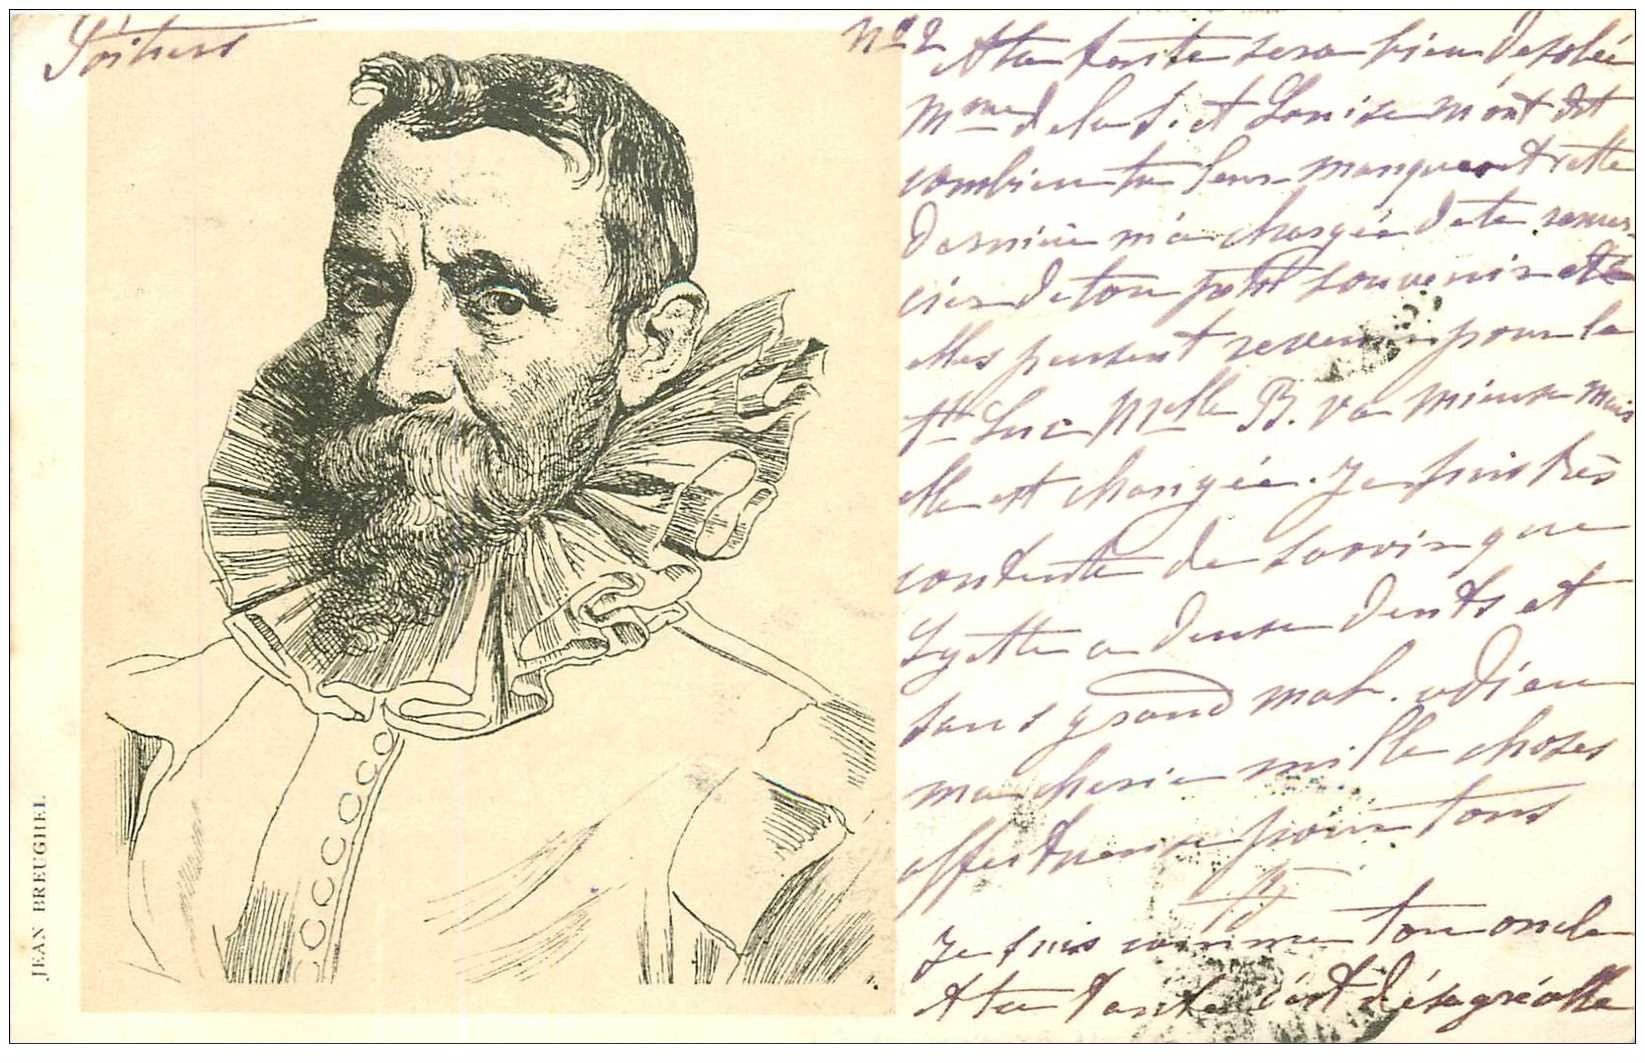 Poitiers
N° 2
Et ta tante sera bien désolée
Mme de la S. et Louise m'ont dit
combien tu leur manques et cette
dernière m'a chargée de te remer-
cier de ton petit souvenir et
elles pensent revenir pour la
St Luc Melle B. va mieux mais
elle est changée. Je suis très
contente de savoir que
Lyette a deux dents et
sans grand mal. adieu
ma cherie mille choses
affectueuses pour tous
Je suis comme ton oncle
et ta tante c'est désagréable
JEAN BREUGHEL